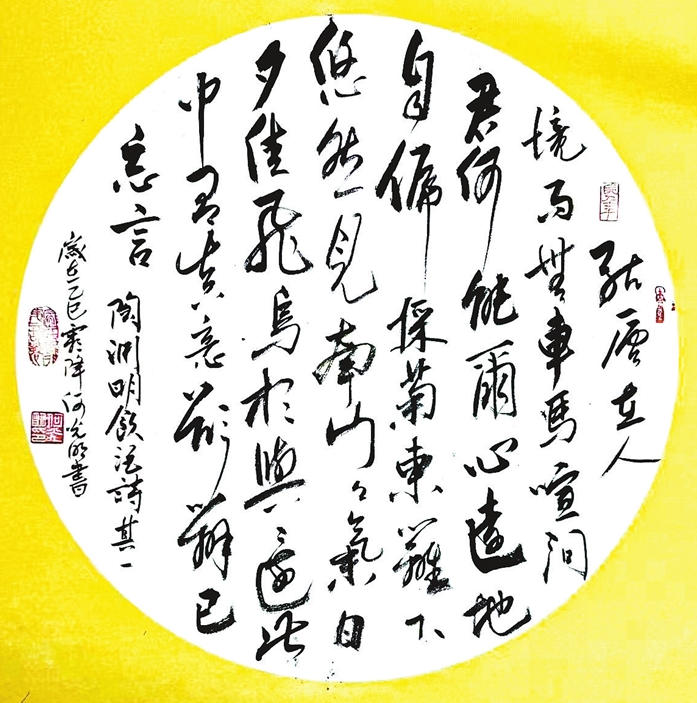 结廬在人
境而無車馬喧問
君何能爾心遠地
自偏採菊東籬下
悠然見南山々氣日
夕佳飛鳥相與還此
中有真意欲辯已
忘言
陶渊明飲酒詩其一
歲在乙巳霜降何光明書